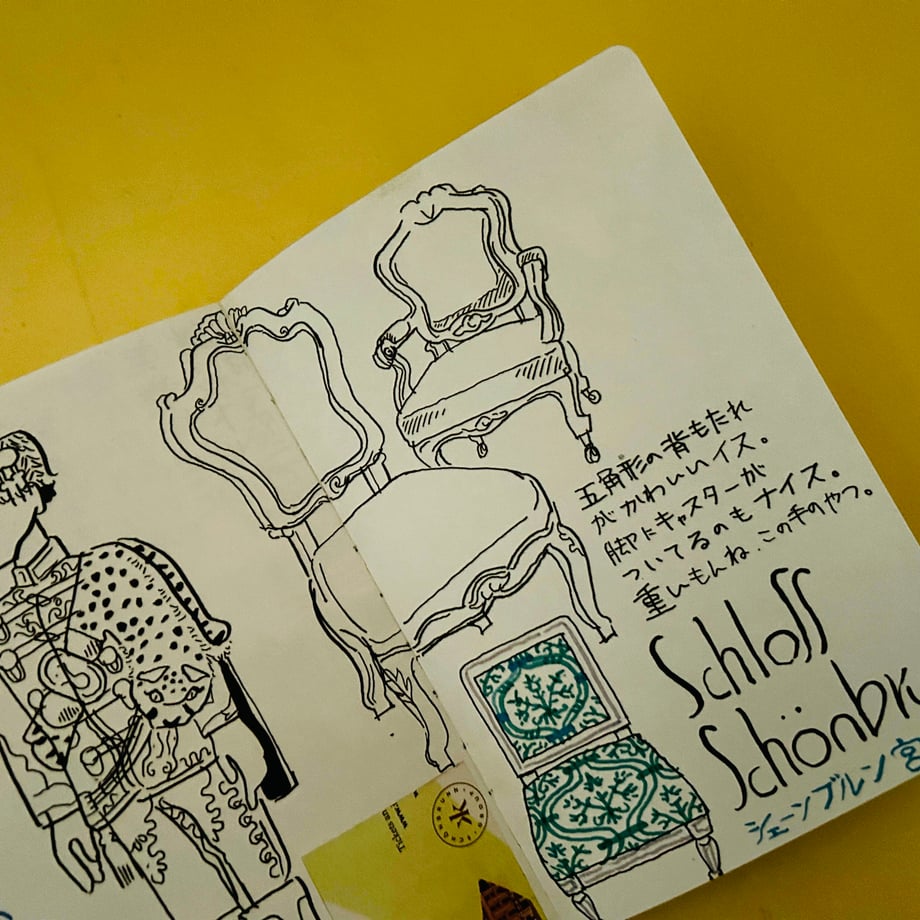 五角形の背もたれ
がかわいいイス。
脚にキャスターが
ついてるのもナイス。
重いもんね、この手のやつ。
Schloss
Schönbr
シェーンブルン宮
Tickets an
www.
SCHÖNBRUNN